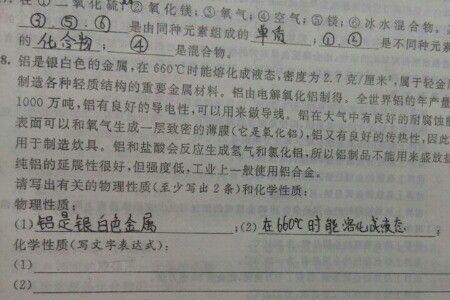 在①二氧化硫 ②氧化镁;③氧气;④空气;⑤镁;⑥冰水混合物,
③、⑤、⑥ 是由同种元素组成的 单质 ; ①、② 是不同种元
的 化合物 ; ④ 是混合物。
8. 铝是银白色的金属,在660℃时能熔化成液态,密度为2.7克/厘米³,属于轻金
制造各种轻质结构的重要金属材料。铝由电解氧化铝制得。全世界铝的年产量
1000万吨,铝有良好的导电性,可以用来做导线。铝在大气中有良好的耐腐蚀
表面可以和氧气生成一层致密的薄膜(它是氧化铝),铝又有良好的传热性,因此
用于制造炊具。铝和盐酸会反应生成氢气和氯化铝,所以铝制品不能用来盛放
纯铝的延展性很好,但强度低,工业上一般使用铝合金。
请写出有关的物理性质(至少写出2条)和化学性质:
物理性质:
(1) 铝是银白色金属 ;(2) 在660℃时能熔化成液态 ;
化学性质(写文字表达式):
(1)
(2)